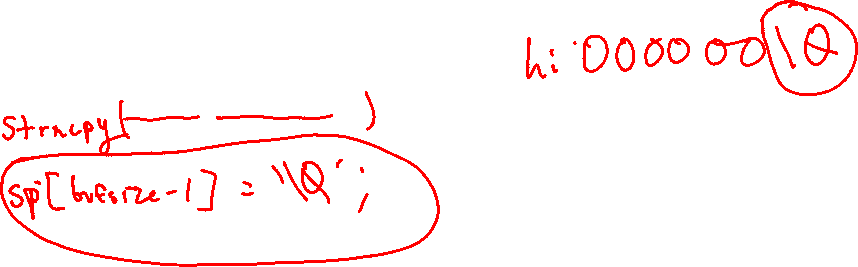 hi:000000\0
strncpy(— — —)
sp[bufsize-1] = '\0';